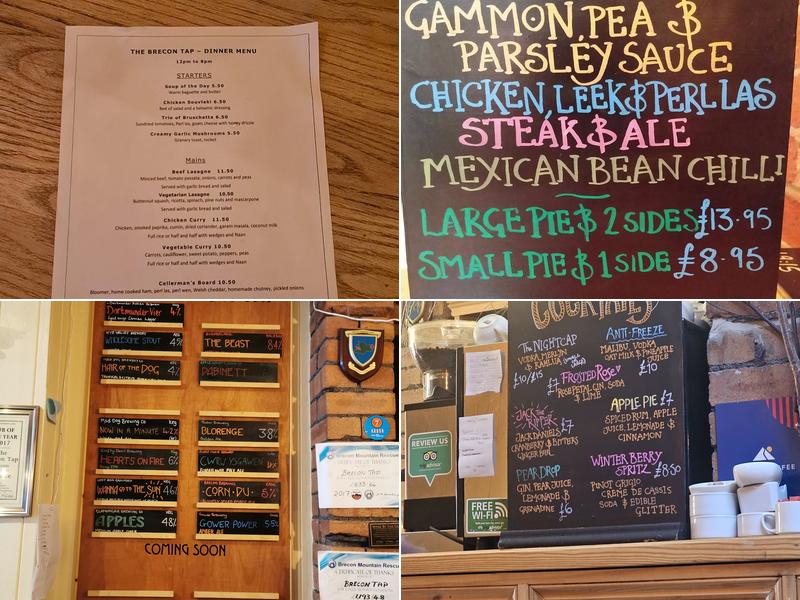 THE BRECON TAP – DINNER MENU
12pm to 8pm
STARTERS
Soup of the Day 5.50
Warm baguette and butter
Chicken Souvlaki 6.50
Bed of salad and a balsamic dressing
Trio of Bruschetta 6.50
Sundried tomatoes, Perl las, goats cheese with honey drizzle
Creamy Garlic Mushrooms 5.50
Granary toast, rocket
Mains
Beef Lasagne 11.50
Minced beef, tomato passata, onions, carrots and peas
Served with garlic bread and salad
Vegetarian Lasagne 10.50
Butternut squash, ricotta, spinach, pine nuts and mascarpone
Served with garlic bread and salad
Chicken Curry 11.50
Chicken, smoked paprika, cumin, dried coriander, garam masala, coconut milk
Full rice or half and half with wedges and Naan
Vegetable Curry 10.50
Carrots, cauliflower, sweet potato, peppers, peas
Full rice or half and half with wedges and Naan
Cellerman's Board 10.50
Bloomer, home cooked ham, perl las, perl wen, Welsh cheddar, homemade chutney, pickled onions
GAMMON, PEA &
PARSLEY SAUCE
CHICKEN, LEEK & PERL LAS
STEAK & ALE
MEXICAN BEAN CHILLI
LARGE PIE & 2 SIDES £13.95
SMALL PIE & 1 SIDE £8.95
Dortmunder Vier 4%
WHOLESOME STOUT
HAIR OF THE DOG
THE BEAST
DABINETT
Mad Dog Brewing Co
NOW IN A MINUTE 4.2%
HEARTS ON FIRE 6%
OF THE SUN
APPLES 4.8%
BLORENGE 3.8%
CORN DU 5%
GOWER POWER 5.5%
COMING SOON
2017
Brecon Mountain Rescue
BRECON TAP
2017
Brecon Mountain Rescu
CERTIFICATE OF THANKS
BRECON TAP
COCKTAILS
The NIGHTCAP
VODKA, MERLYN
& KAHLUA
£10/£15
ANTI-FREEZE
MALIBU, VODKA
OAT MILK & PINEAPPLE
JUICE £10
£7 FROSTED Rose
ROSE PETAL GIN, SODA
& LIME
JACK THE
RIPPER £7
JACK DANIELS,
CRANBERRY & BITTERS
GINGER BEER
APPLE PIE £7
SPICED RUM, APPLE
JUICE, LEMONADE &
CINNAMON
PEAR DROP
GIN, PEAR JUICE,
LEMONADE &
GRENADINE £6
WINTER BERRY
SPRITZ £8.50
PINOT GRIGIO
CREME DE CASSIS
SODA & EDIBLE
GLITTER
REVIEW US
FREE
WI-FI